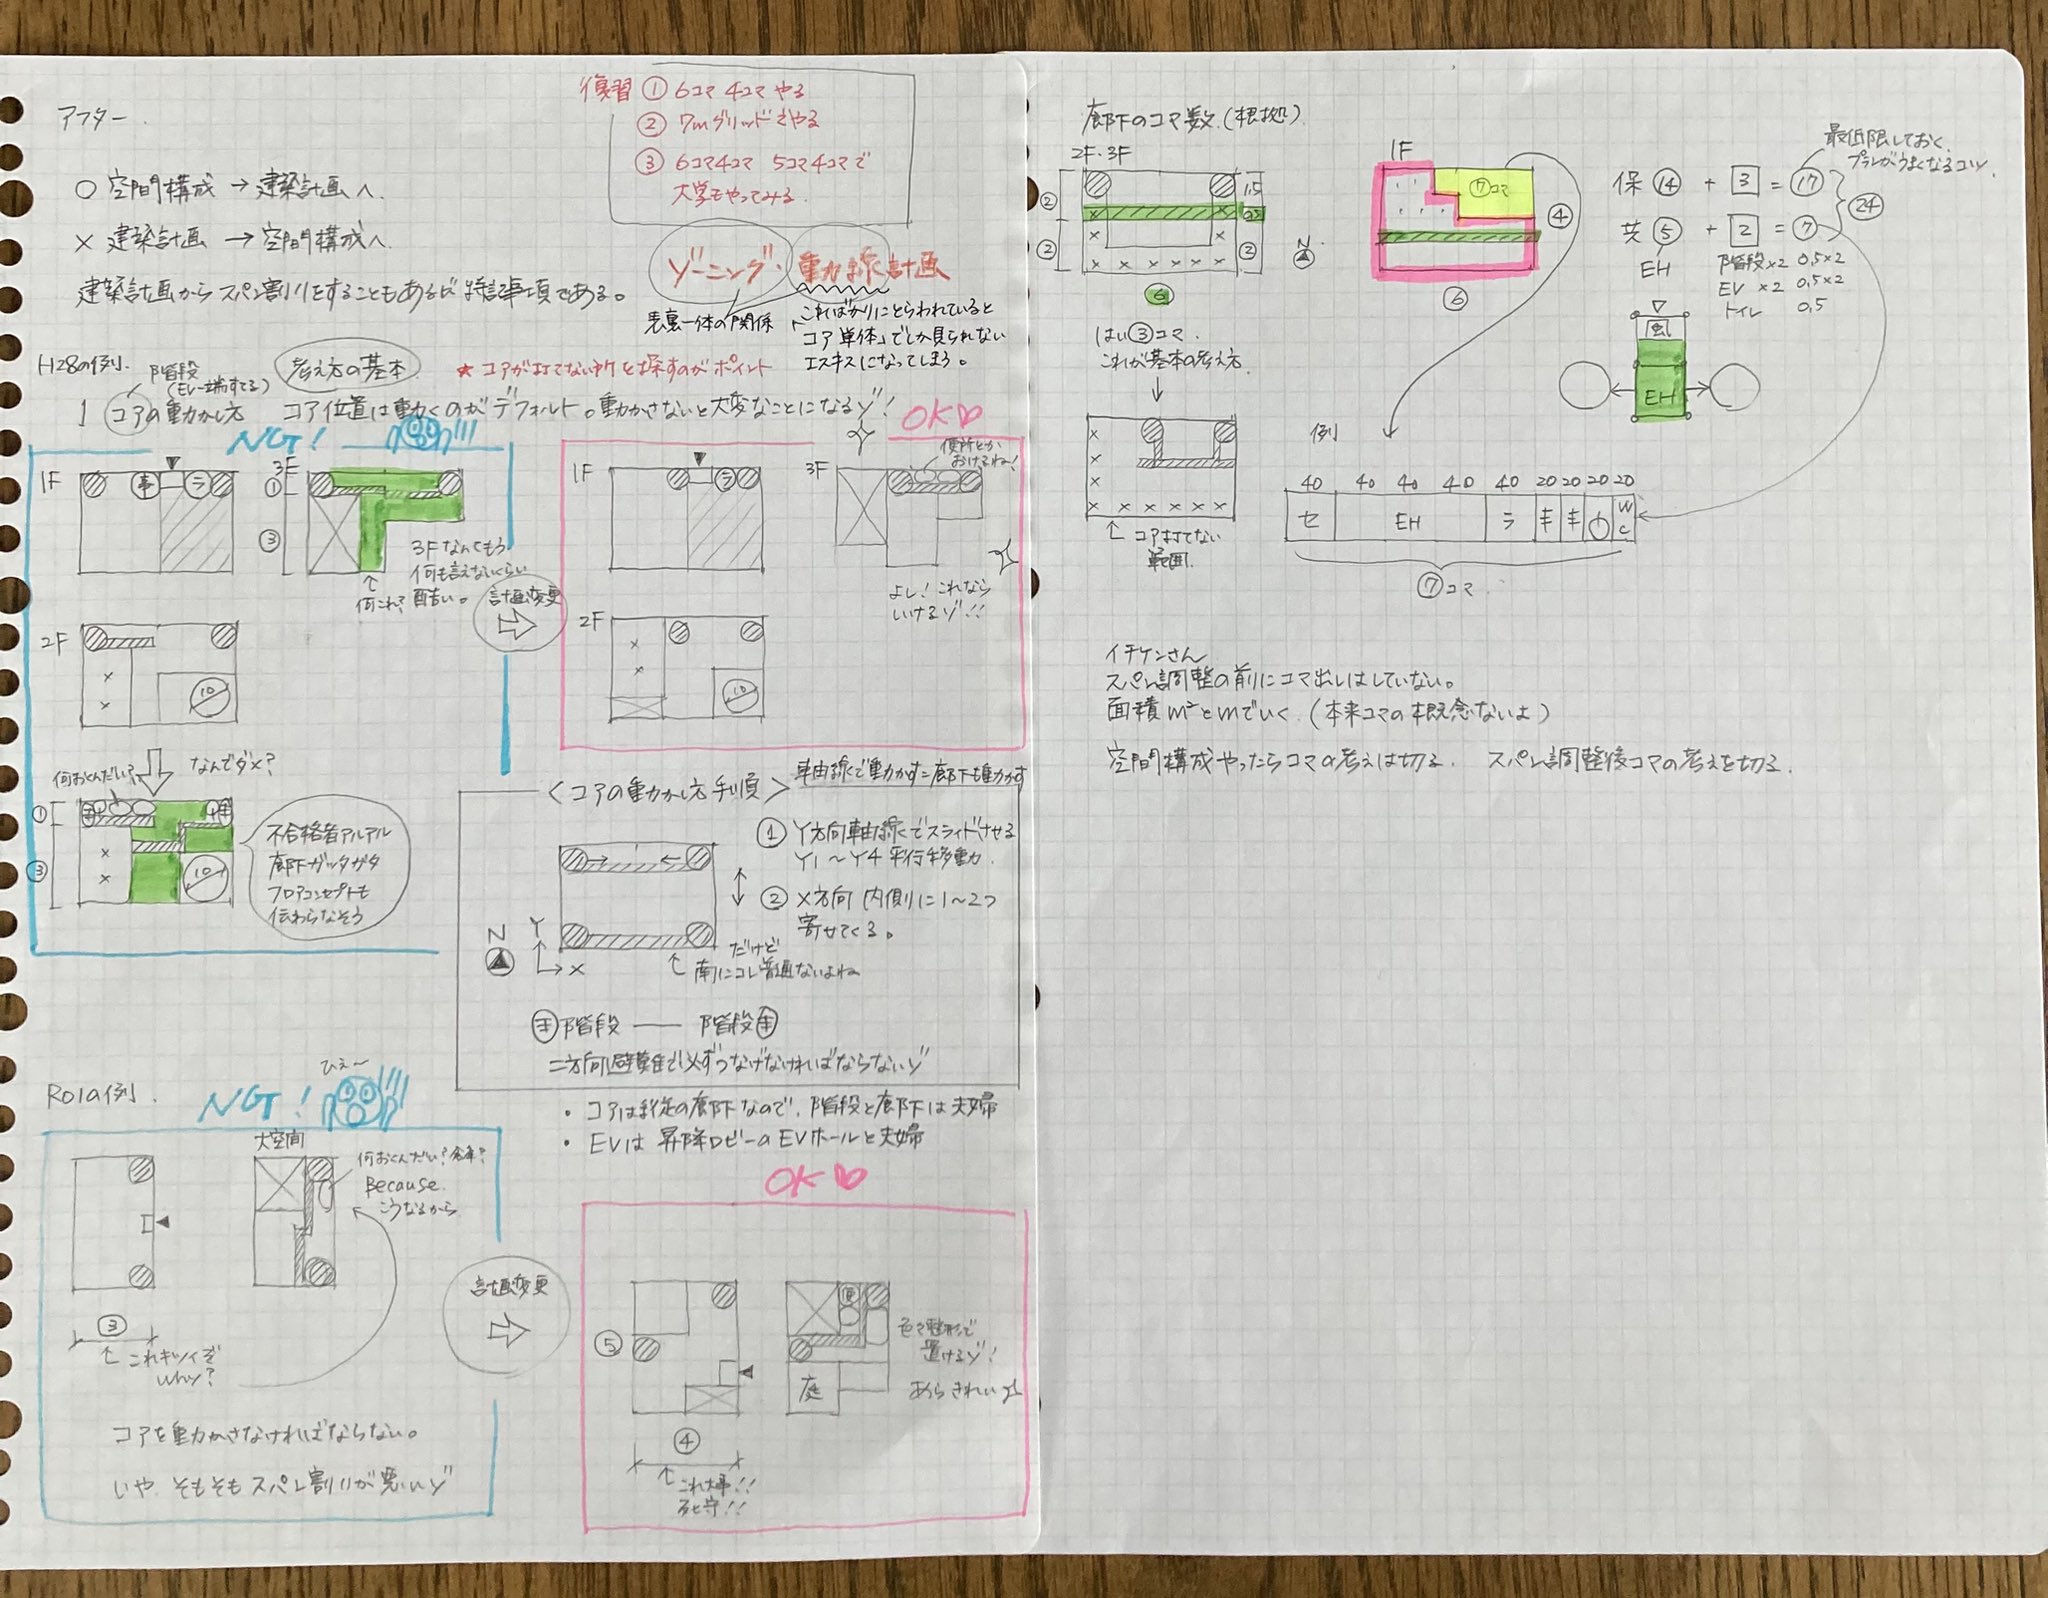 アフター.
○ 空間構成 → 建築計画へ.
× 建築計画 → 空間構成へ.
建築計画からスパン割りをすることもあるが特記事項である。
復習 ① 6コマ 4コマ やる
② 7mグリッドでやる
③ 6コマ4コマ 5コマ4コマで
大学もやってみる.
ゾーニング・動線計画
表裏一体の関係
こればかりにとらわれていると
「コア単体」でしか見られない
エスキスになってしまう。
H28の例.
階段
(EV一端すてる)
考え方の基本.
★ コアが打てない所を探すのがポイント
1 コアの動かし方
コア位置は動くのがデフォルト。動かさないと大変なことになるゾ!
NG!
1F
事
ラ
3F
①
③
3Fなんてもう
何も言えないくらい
酷い。
何これ?
2F
10
何おくんだい?
なんでダメ?
①
③
10
不合格者アルアル
廊下ガッタガタ
フロアコンセプトも
伝わらなそう
計画変更
OK♡
1F
ラ
3F
便所とか
おけるね!
よし! これなら
いけるゾ!!
2F
10
<コアの動かし方手順>
軸線で動かす=廊下も動かす
① Y方向軸線でスライドさせる
Y1～Y4 平行移動.
② X方向 内側に1～2つ
寄せてくる。
N
Y
X
だけど
南にコレ普通ないよね
階段 ― 階段
二方向避難で必ずつなげなければならないゾ
・コアは縦の廊下なので、階段と廊下は夫婦
・EVは昇降ロビーのEVホールと夫婦
R01の例.
NG!
ひえ～
大空間
何おくんだい? 倉庫?
Because.
こうなるから
③
これキツイぞ
why?
コアを動かさなければならない。
いや そもそもスパン割りが悪いゾ
計画変更
OK♡
⑤
④
これ大事!!
死守!!
便
庭
色々整形で
置けるゾ!
あらきれい
廊下のコマ数.(根拠)
2F・3F
②
②
1.5
0.5
②
⑥
N
はい③コマ.
これが基本の考え方.
コア打てない
範囲.
1F
⑦コマ
④
⑥
最低限しておく.
プランがうまくなるコツ
保 ⑭ + 3 = ⑰
共 ⑤ + 2 = ⑦
㉔
EH
階段×2 0.5×2
EV ×2 0.5×2
トイレ 0.5
風
EH
例
40 40 40 40 40 20 20 20 20
セ EH ラ WC
⑦コマ.
イチケンさん
スパン調整の前にコマ出しはしていない。
面積 m²とmでいく.(本来コマの概念ないよ)
空間構成やったらコマの考えは切る. スパン調整後コマの考えを切る.